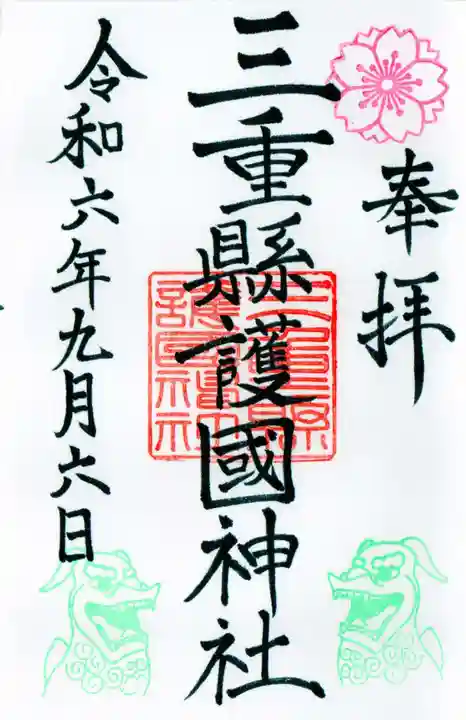 奉拝
三重縣護國神社
令和六年九月六日